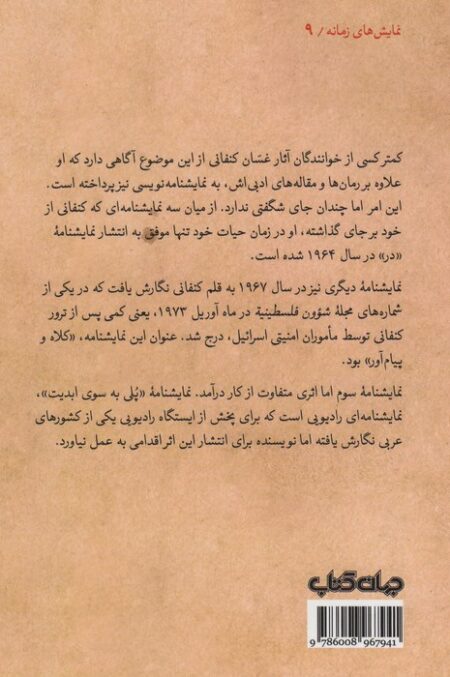 نمایش‌های زمانه / ۹
کمتر کسی از خوانندگان آثار غسّان کنفانی از این موضوع آگاهی دارد که او
علاوه بر رمان‌ها و مقاله‌های ادبی‌اش، به نمایشنامه‌نویسی نیز پرداخته است.
این امر اما چندان جای شگفتی ندارد. از میان سه نمایشنامه‌ای که کنفانی از
خود برجای گذاشته، او در زمان حیات خود تنها موفق به انتشار نمایشنامهٔ
«در» در سال ۱۹۶۴ شده است.
نمایشنامهٔ دیگری نیز در سال ۱۹۶۷ به قلم کنفانی نگارش یافت که در یکی از
شماره‌های مجلهٔ شؤون فلسطینیة در ماه آوریل ۱۹۷۳، یعنی کمی پس از ترور
کنفانی توسط مأموران امنیتی اسرائیل، درج شد. عنوان این نمایشنامه، «کلاه و
پیام‌آور» بود.
نمایشنامهٔ سوم اما اثری متفاوت از کار درآمد. نمایشنامهٔ «پُلی به سوی ابدیت»،
نمایشنامه‌ای رادیویی است که برای پخش از ایستگاه رادیویی یکی از کشورهای
عربی نگارش یافته اما نویسنده برای انتشار این اثر اقدامی به عمل نیاورد.
جهان کتاب
9 786008 967941